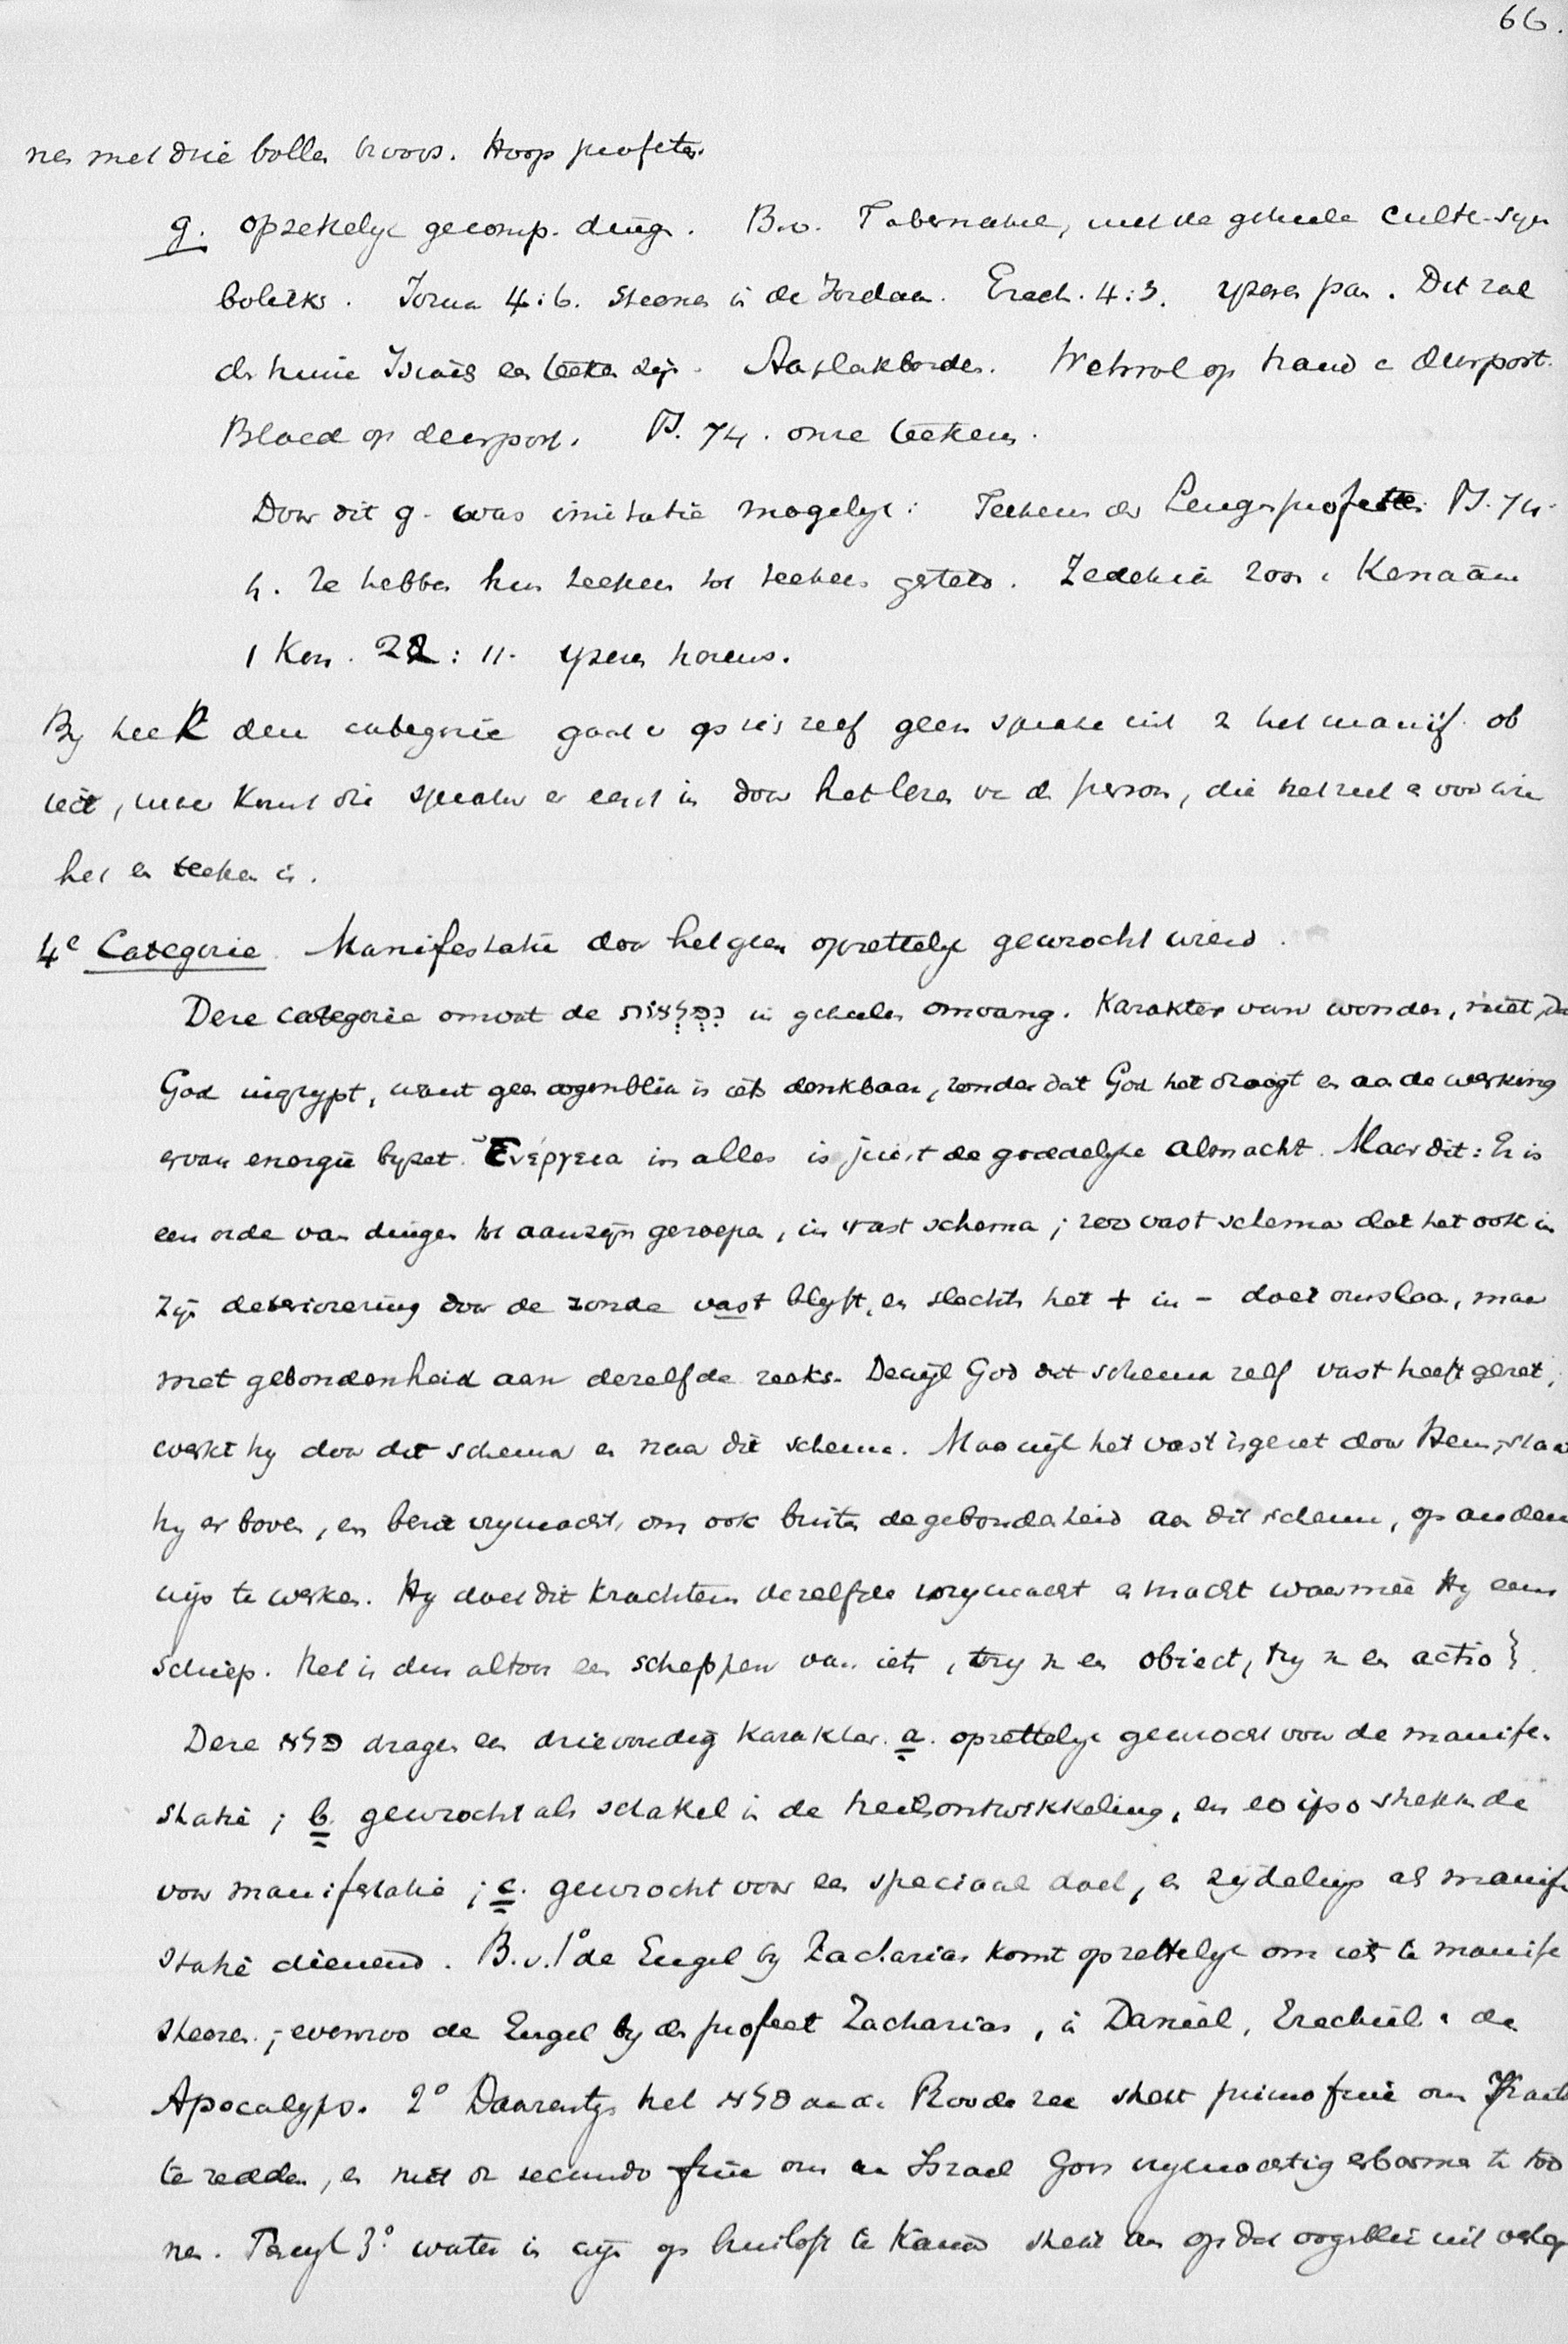 66.
nes met drie bollen broos. Hoop profeten.
g. opzettelyk gecomp. dingn. B.v. Tabernakel, met de geheele culte-sym
boliek. Jozua 4:6. Steenen in de Jordaan. Ezech. 4:3. yzeren pan. Dit zal
den huize Israëls een teeken zijn. Aanplakborden. Wetsrol op hand en deurpost.
Bloed op deurpost. Ps. 74. onze teekens.
Door dit g. was imitatie mogelyk: Teekens der Leugenprofeten: Ps. 74.
4. Ze hebben hun teeken tot teekens gesteld. Zedekia zoon v. Kenaäna
1 Kon. 22:11. yzeren horens.
By deze categorie gaat op zich zelf geen sprake uit van het manif. ob
ject, maar komt die sprake er eerst in door het lezen van de persoon, die het ziet en voor wie
het een teeken is.
4e Categorie. Manifestatie door hetgeen opzettelyk gewrocht wierd.
Deze categorie omvat de נִפְלָאוֹת in geheelen omvang. Karakter van wonder, niet, dat
God ingrypt, want geen oogenblik is iets denkbaar, zonder dat God het draagt en aan de werking
ervan energie byzet. Ἐνέργεια in alles is juist de goddelyke almacht. Maar dit: Er is
een orde van dingen tot aanzijn geroepen, in vast schema; zoo vast schema dat het ook in
zijn deterioreering door de zonde vast blyft, en slechts het + in - doet omslaan, maar
met gebondenheid aan dezelfde reeks. Dewijl God dit schema zelf vast heeft gezet,
werkt hy door dit schema en naar dit schema. Maar wijl het vast is gezet door Hem, staat
hy er boven, en bezit vrymacht, om ook buiten de gebondenheid aan dit schema, op andere
wijs te werken. Hy doet dit krachtens dezelfde vrymacht en macht waarmeê Hy eens
schiep. Het is dus altoos een scheppen van iets, 't zy van een object, 't zy van een actio}.
Deze פלא dragen een drievoudig karakter. a. opzettelyk gewrocht voor de manife-
statie; b. gewrocht als schakel in de heilsontwikkeling, en eo ipso strekkende
voor manifestatie; c. gewrocht voor een speciaal doel, en zijdelings als manife
statie dienend. B.v. 1° de Engel by Zacharias komt opzettelyk om iets te manife
steeren; evenzoo de Engel by den profeet Zacharias, in Daniël, Ezechiël en de
Apocalyps. 2° Daarentegen het פלא aan de Roode zee strekt primo fine om Israel
te redden, en niet dan secundo fine om aan Israel Gods vrymachtig erbarmen te too
nen. Terwyl 3° water in wijn op bruiloft te Kana strekt om op dat oogenblik uit verleg